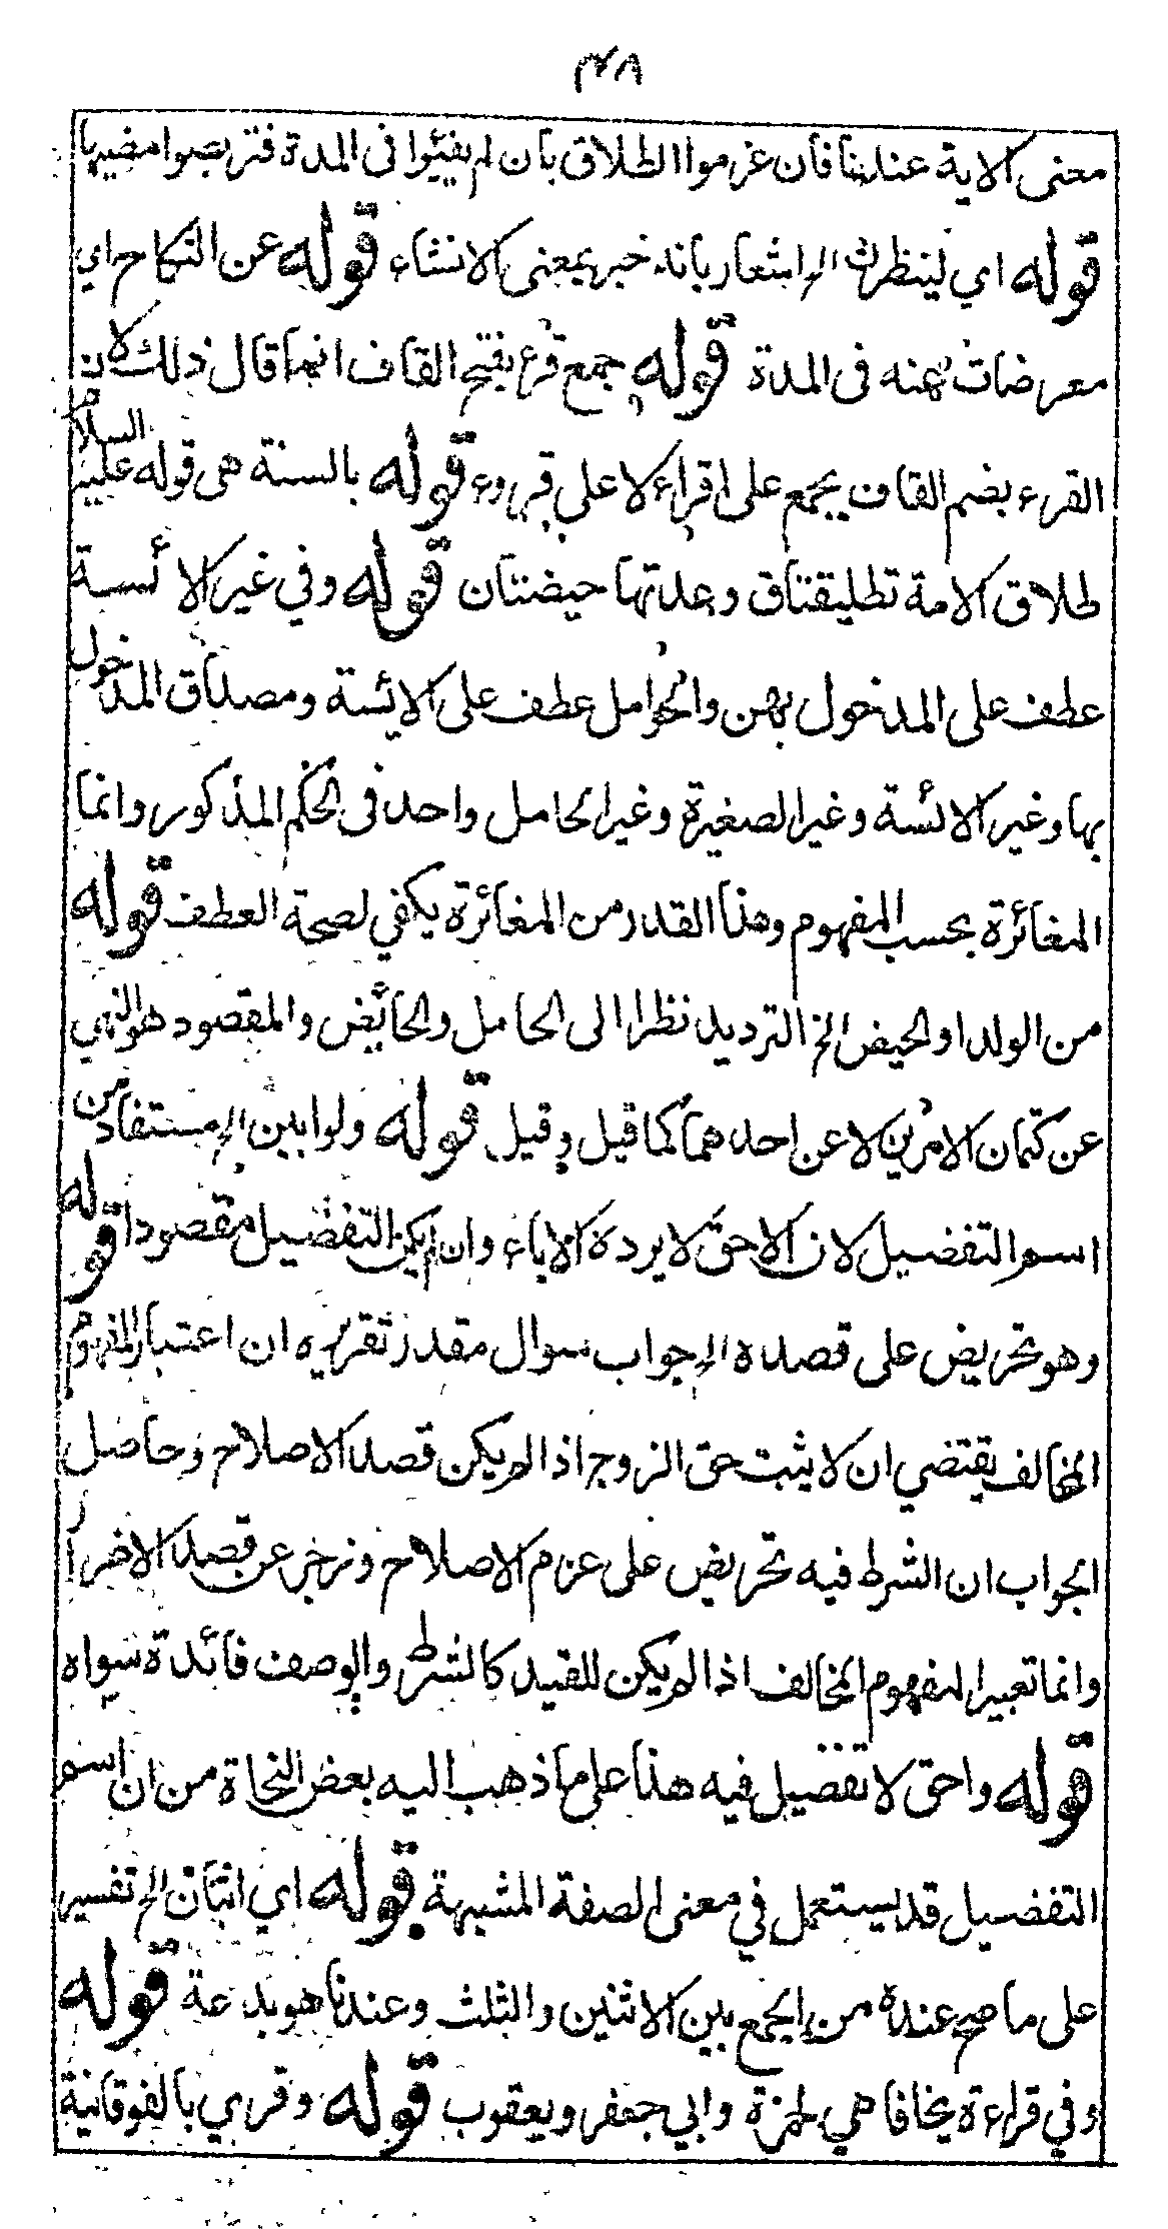 ٣٨
معنى الاية عندنا فان عزموا الطلاق بان لم يفيئوا فى المدة فتربصوا مضيها
قوله اي لينتظرن الخ اشعار بانه خبر بمعنى الانشاء قوله عن النكاح اي
معرضات عنه فى المدة قوله جمع قرء بفتح القاف انما قال ذلك لان
القرء بضم القاف يجمع على اقراء لا على قروء قوله بالسنة هى قوله عليه السلام
طلاق الامة تطليقتان وعدتها حيضتان قوله وفي غير الائسة
عطف على المدخول بهن والحوامل عطف على الائسة ومصداق المدخول
بها وغير الائسة وغير الصغيرة وغير الحامل واحد فى الحكم المذكور وانما
المغائرة بحسب المفهوم وهذا القدر من المغائرة يكفي لصحة العطف قوله
من الولد او الحيض الخ الترديد نظرا الى الحامل والحائض والمقصود هو النهي
عن كتمان الامرين لا عن احدهما كما قيل وقيل قوله ولو ابين الخ مستفاد من
اسم التفضيل لان الاحق لا يرده الاباء وان لم يكن التفضيل مقصودا قوله
وهو تحريض على قصده الخ جواب سوال مقدر تقريره ان اعتبار المفهوم
المخالف يقتضي ان لا يثبت حق الزوج اذا لم يكن قصد الاصلاح وحاصل
الجواب ان الشرط فيه تحريض على عزم الاصلاح وزجر عن قصد الاضرار
وانما تعبير المفهوم المخالف اذا لم يكن للقيد كالشرط والوصف فائدة سواه
قوله واحق لا تفضيل فيه هذا على ما ذهب اليه بعض النحاة من ان اسم
التفضيل قد يستعمل في معنى الصفة المشبهة قوله اي اثنان الخ تفسير
على ما صح عنده من الجمع بين الاثنين والثلث وعندنا هو بدعة قوله
وفي قراءة يخافا هي لحمزة وابي جعفر ويعقوب قوله وقري بالفوقانية